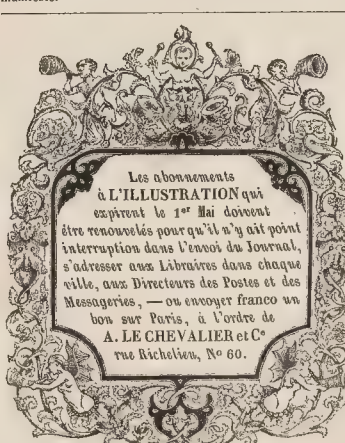 Les abonnements
à L'ILLUSTRATION qui
expirent le 1er Mai doivent
être renouvelés pour qu'il n'y ait point
interruption dans l'envoi du Journal,
s'adresser aux Libraires dans chaque
ville, aux Directeurs des Postes et des
Messageries, — ou envoyer franco un
bon sur Paris, à l'ordre de
A. LE CHEVALIER et Ce
rue Richelieu, No 60.